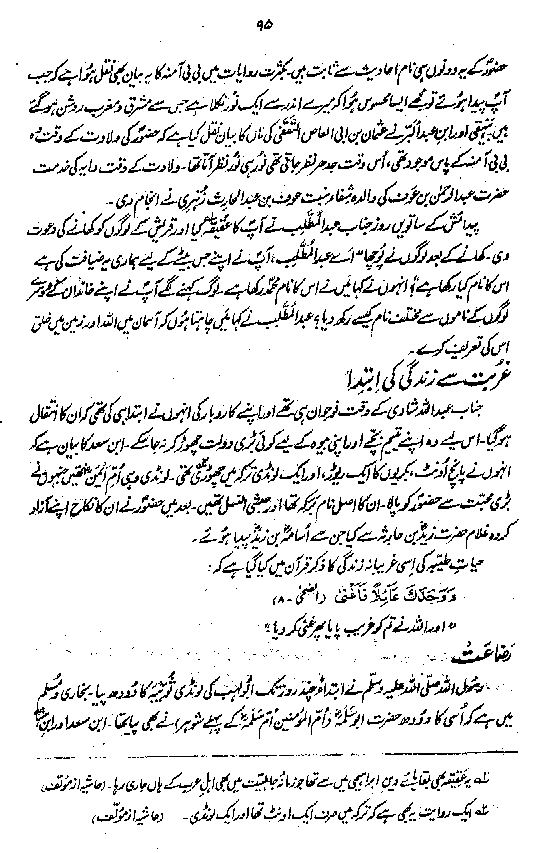 ۹۵
حضورؐ کے یہ دونوں ہی نام احادیث سے ثابت ہیں۔ بکثرت روایات میں بی بی آمنہ کا یہ بیان بھی نقل ہوا ہے کہ جب
آپؐ پیدا ہوئے تو مجھے ایسا محسوس ہوا کہ میرے اندر سے ایک نور نکلا ہے جس سے مشرق و مغرب روشن ہو گئے
ہیں۔ بیہقی اور ابن عبدالبر نے عثمان بن ابی العاص الثقفی کی ماں کا بیان نقل کیا ہے کہ حضورؐ کی ولادت کے وقت وہ
بی بی آمنہ کے پاس موجود تھی، اُس وقت جدھر نظر جاتی تھی نور ہی نور نظر آتا تھا۔ ولادت کے وقت دایہ کی خدمت
حضرت عبدالرحمٰن بن عوف کی والدہ شفاء بنت عوف بن عبدالحارث زُہری نے انجام دی۔
پیدائش کے ساتویں روز جناب عبدالمُطَّلِب نے آپؐ کا عقیقہ کیا اور قریش کے لوگوں کو کھانے کی دعوت
دی۔ کھانے کے بعد لوگوں نے پوچھا "اے عبدالمطَّلب، آپ نے اپنے جس بیٹے کے لیے ہماری یہ ضیافت کی ہے
اس کا نام کیا رکھا ہے؟ انہوں نے کہا میں نے اس کا نام محمدؐ رکھا ہے۔ لوگ کہنے لگے آپ نے اپنے خاندان کے دوسرے
لوگوں کے ناموں سے مختلف نام کیسے رکھ دیا؟ عبدالمطَّلب نے کہا میں چاہتا ہوں کہ آسمان میں اللہ اور زمین میں خلق
اس کی تعریف کرے۔
غربت سے زندگی کی ابتدا
جناب عبداللہ شادی کے وقت نوجوان ہی تھے اور اپنے کاروبار کی انہوں نے ابتدا ہی کی تھی کہ ان کا انتقال
ہو گیا۔ اس لیے وہ اپنے یتیم بچے اور اپنی بیوہ کے لیے کوئی بڑی دولت چھوڑ کر نہ جا سکے۔ ابن سعد کا بیان ہے کہ
انہوں نے پانچ اُونٹ، بکریوں کا ایک ریوڑ، اور ایک لونڈی ترکہ میں چھوڑی تھی۔ لونڈی وہی اُمّ ایمنؓ تھیں جنہوں نے
بڑی محبت سے حضورؐ کو پالا۔ ان کا اصل نام برَکہ تھا اور حبشی النسل تھیں۔ بعد میں حضورؐ نے ان کا نکاح اپنے آزاد
کردہ غلام حضرت زیدؓ بن حارثہ سے کیا جن سے اُسامہؓ بن زید پیدا ہوئے۔
حیاتِ طیبہ کی اِسی غریبانہ زندگی کا ذکر قرآن میں کیا گیا ہے کہ:
وَوَجَدَكَ عَائِلًا فَأَغْنٰى (الضحیٰ۔۸)
"اور اللہ نے تم کو غریب پایا پھر غنی کر دیا۔"
رضاعت
رسول اللہ صلی اللہ علیہ وسلم نے ابتداءً چند روز تک ابولہب کی لونڈی ثُوَیبہؓ کا دودھ پیا۔ بخاری و مسلم
میں ہے کہ اُسی کا دودھ حضرت ابوسلمہؓ (اُمّ المومنین اُمّ سلمہؓ کے پہلے شوہر) نے بھی پیا تھا۔ ابن سعد اور ابن
یہ عقیقہ بھی بقایائے دین ابراہیمی میں سے تھا جو زمانۂ جاہلیت میں بھی اہلِ عرب کے ہاں جاری رہا۔ (حاشیہ از مؤلف)
ایک روایت یہ بھی ہے کہ ترکہ میں صرف ایک اونٹ تھا اور ایک لونڈی۔ (حاشیہ از مؤلف)